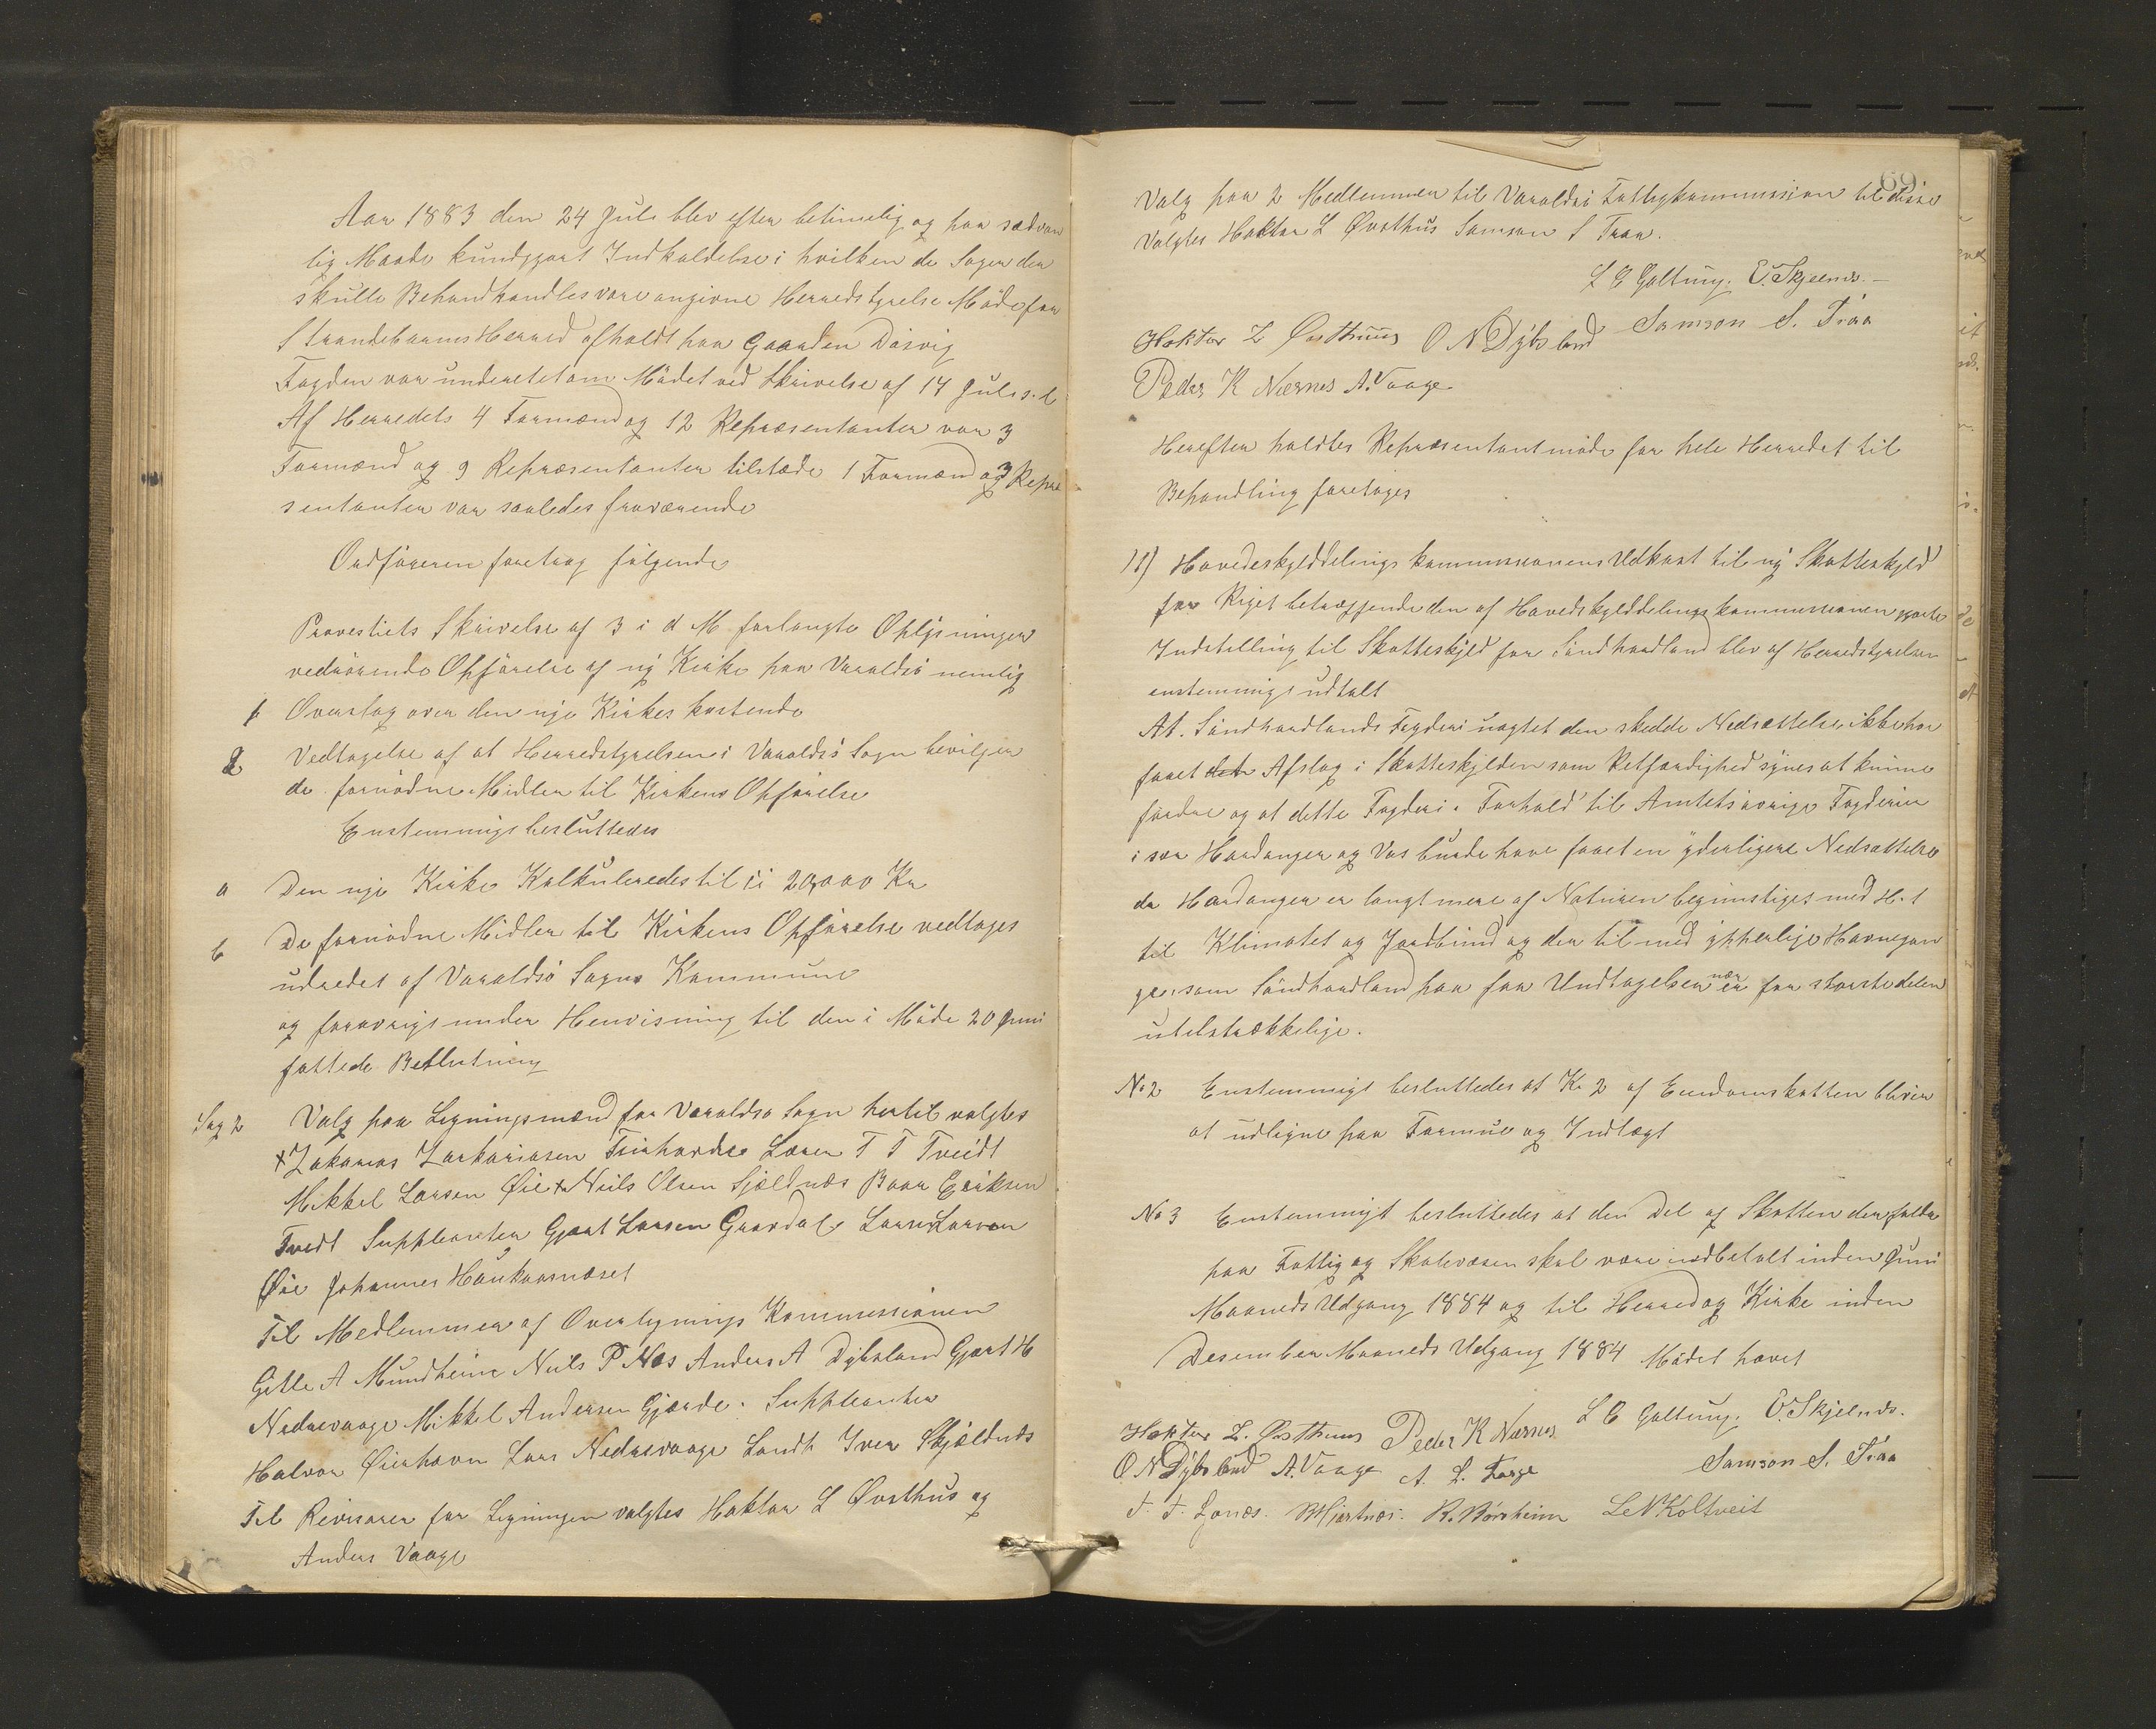 Aar 1883 den 24 Juli blev efter betimelig og paa sædvan
lig Maade kundgjort Indkaldelse i hvilken de Sager der
skulle Behandhandles vare angivne Herredstyrelse Möde for
Strandebarms Herred afholdt paa Gaarden Dåsvig
Fogden var underettet om Mödet ved Skrivelse af 17 Juli s. l
Af Herredets 4 Formænd og 12 Repræsentanter var 3
Formænd og 9 Repræsentanter tilstæde 1 Formænd og 3 Repræ
sentanter var saaledes fraværende
Ordföreren foretog fölgende
Provestiets Skrivelse af 3 i d M forlangte Oplysninger
vedrörende Opförelse af ny Kirke paa Varaldsö nemlig
1 Overslag over den nye Kirkes kostende
2 Vedtagelse af at Herredstyrelsen i Varaldsö Sogn bevilger
de fornödne Midler til Kirkens Opförelse
Enstemmigt besluttedes
a Den nye Kirke Kalkuleredes til 20,000 Kr
b De fornödne Midler til Kirkens Opförelse vedtages
udredet af Varaldsö Sogns Kommune
og forøvrigt under Henvisning til den i Möde 20 Juni
fattede Beslutning
Sag 2 Valg paa Ligningsmænd for Varaldsö Sogn hertil valgtes
x Zakarias Zackariasen Lærer T T Tveidt
Mikkel Larsen Øie x Niels Olsen Sjældnæs Baar Eriksen
Tvedt Suppleanter Gjert Larsen Gravdal Lars Larsen
Øie Johannes Haukaasnæset
Til Medlemmer af Overlignings Kommissionen
Gitle A Mundheim Niels P Næs Anders A Dybsland Gjert H
Nedrevaage Mikkel Andersen Gjærde. Suppleanter
Halvor Øierhavn Lars Nedrevaage Landh Iver Skjældnæs
Til Revisorer for Ligningen valgtes Haktor L Øvsthus og
Anders Vaage
69
Valg paa 2 Medlemmer til Varaldsö Fattigkommission til disse
Valgtes Haktor L Øvsthus Samson S Traa.
L E Galtung. E. Skjelnæs.
Haktor L Øvsthuus O N Dybsland Samson S. Traa
Peder K Næsnes A. Vaage
Herefter holdtes Repræsentantmöde for hele Herredet til
Behandling foretages
1) Hovedskylddelings kommissionens Udkast til ny Skatteskyld
for Riget betræffende den af Hovedskylddelingskommissionen gjorte
Indstilling til Skatteskyld for Söndhordland blev af Herredstyrelsen
enstemmigt udtalt
At. Söndhordlands Fogderi uagtet den skedde Nedsættelse ikke har
faaet det Afslag i Skatteskylden som Retfærdighed synes at kunne
fordre og at dette Fogderi i Forhold til Amtets övrige Fogderier
i sær Hardanger og Vos burde have faaet en yderligere Nedsættelse
da Hardanger er langt mere af Naturen begunstiget med H. t
til Klimatet og Jordbund og der til med ypperlige Havnegan
ge, som Söndhordland paa faa Undtagelser nær er for störstedelen
utilstrækkelige.
No 2 Enstemmigt besluttedes at Kr 2 af Eiendomskatten bliver
at udligne paa Formue og Indtægt
No 3 Enstemmigt besluttedes at den Del af Skatten der falder
paa Fattig og Skolevæsen skal være indbetalt inden Juni
Maaneds Udgang 1884 og til Herred og Kirke inden
Desember Maaneds Udgang 1884 Mödet hævet
Haktor L. Øvsthuus Peder K Næsnes L E Galtung. E. Skjelnæs.
O N Dybsland A. Vaage A. L. Samson S. Traa
T. T. Lonæs. R. Börsheim L N Koltveit